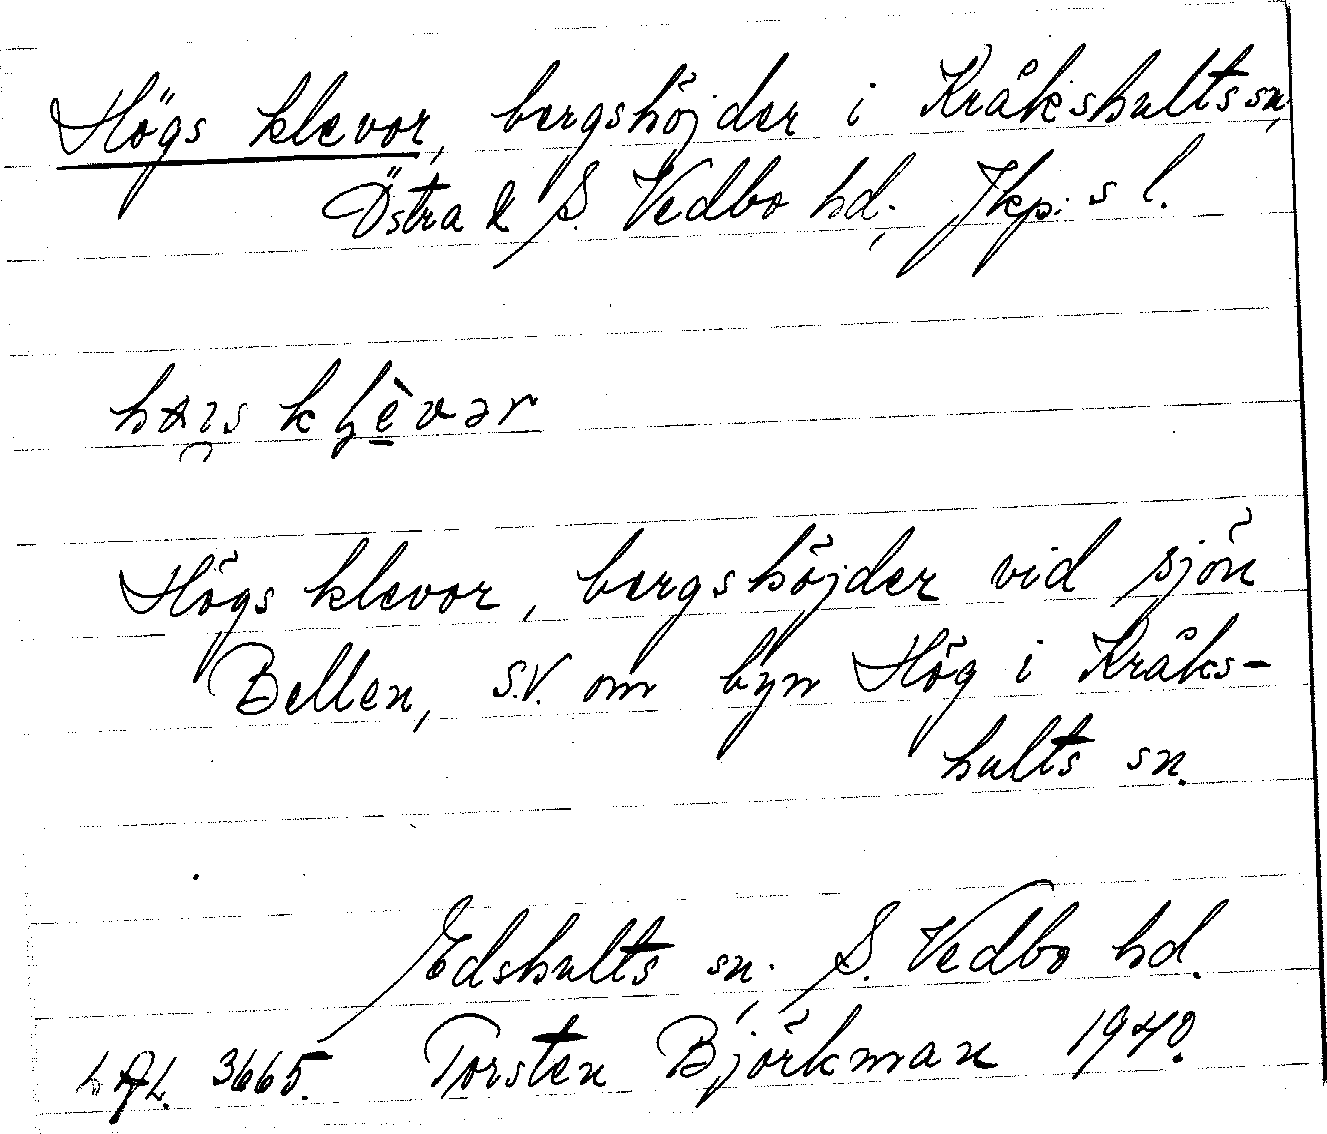 Högs klevor, bergshöjder i Kråkshults sn,
Östra & S. Vedbo hd; Jkp:s l.
Högs klevor, bergshöjder vid sjön
Bellen, S.V. om byn Hög i Kråks-
hults sn.
Edshults sn; S. Vedbo hd.
3665. Torsten Björkman 1940.